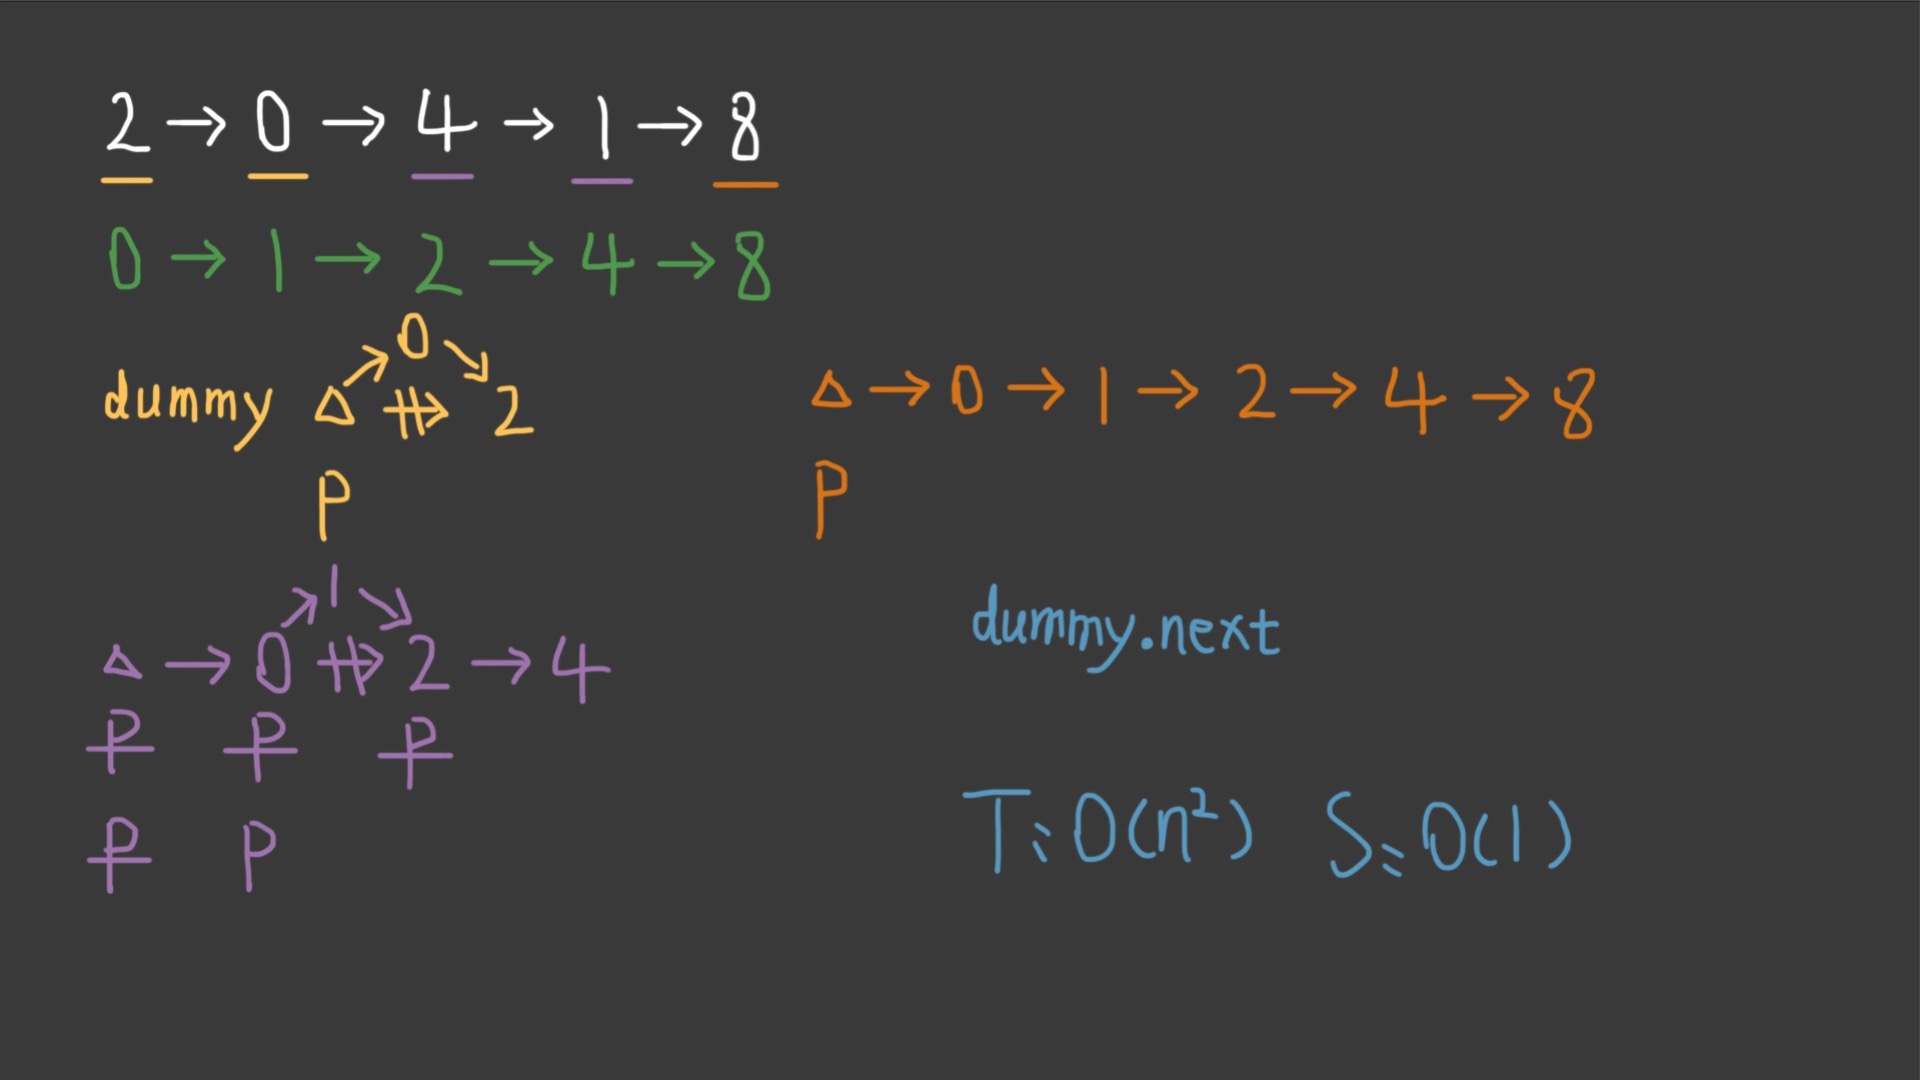 2 → 0 → 4 → 1 → 8
0 → 1 → 2 → 4 → 8
0
dummy Δ → 2
P
1
Δ → 0 → 2 → 4
P P P
P P
Δ → 0 → 1 → 2 → 4 → 8
P
dummy.next
T: O(n²) S: O(1)